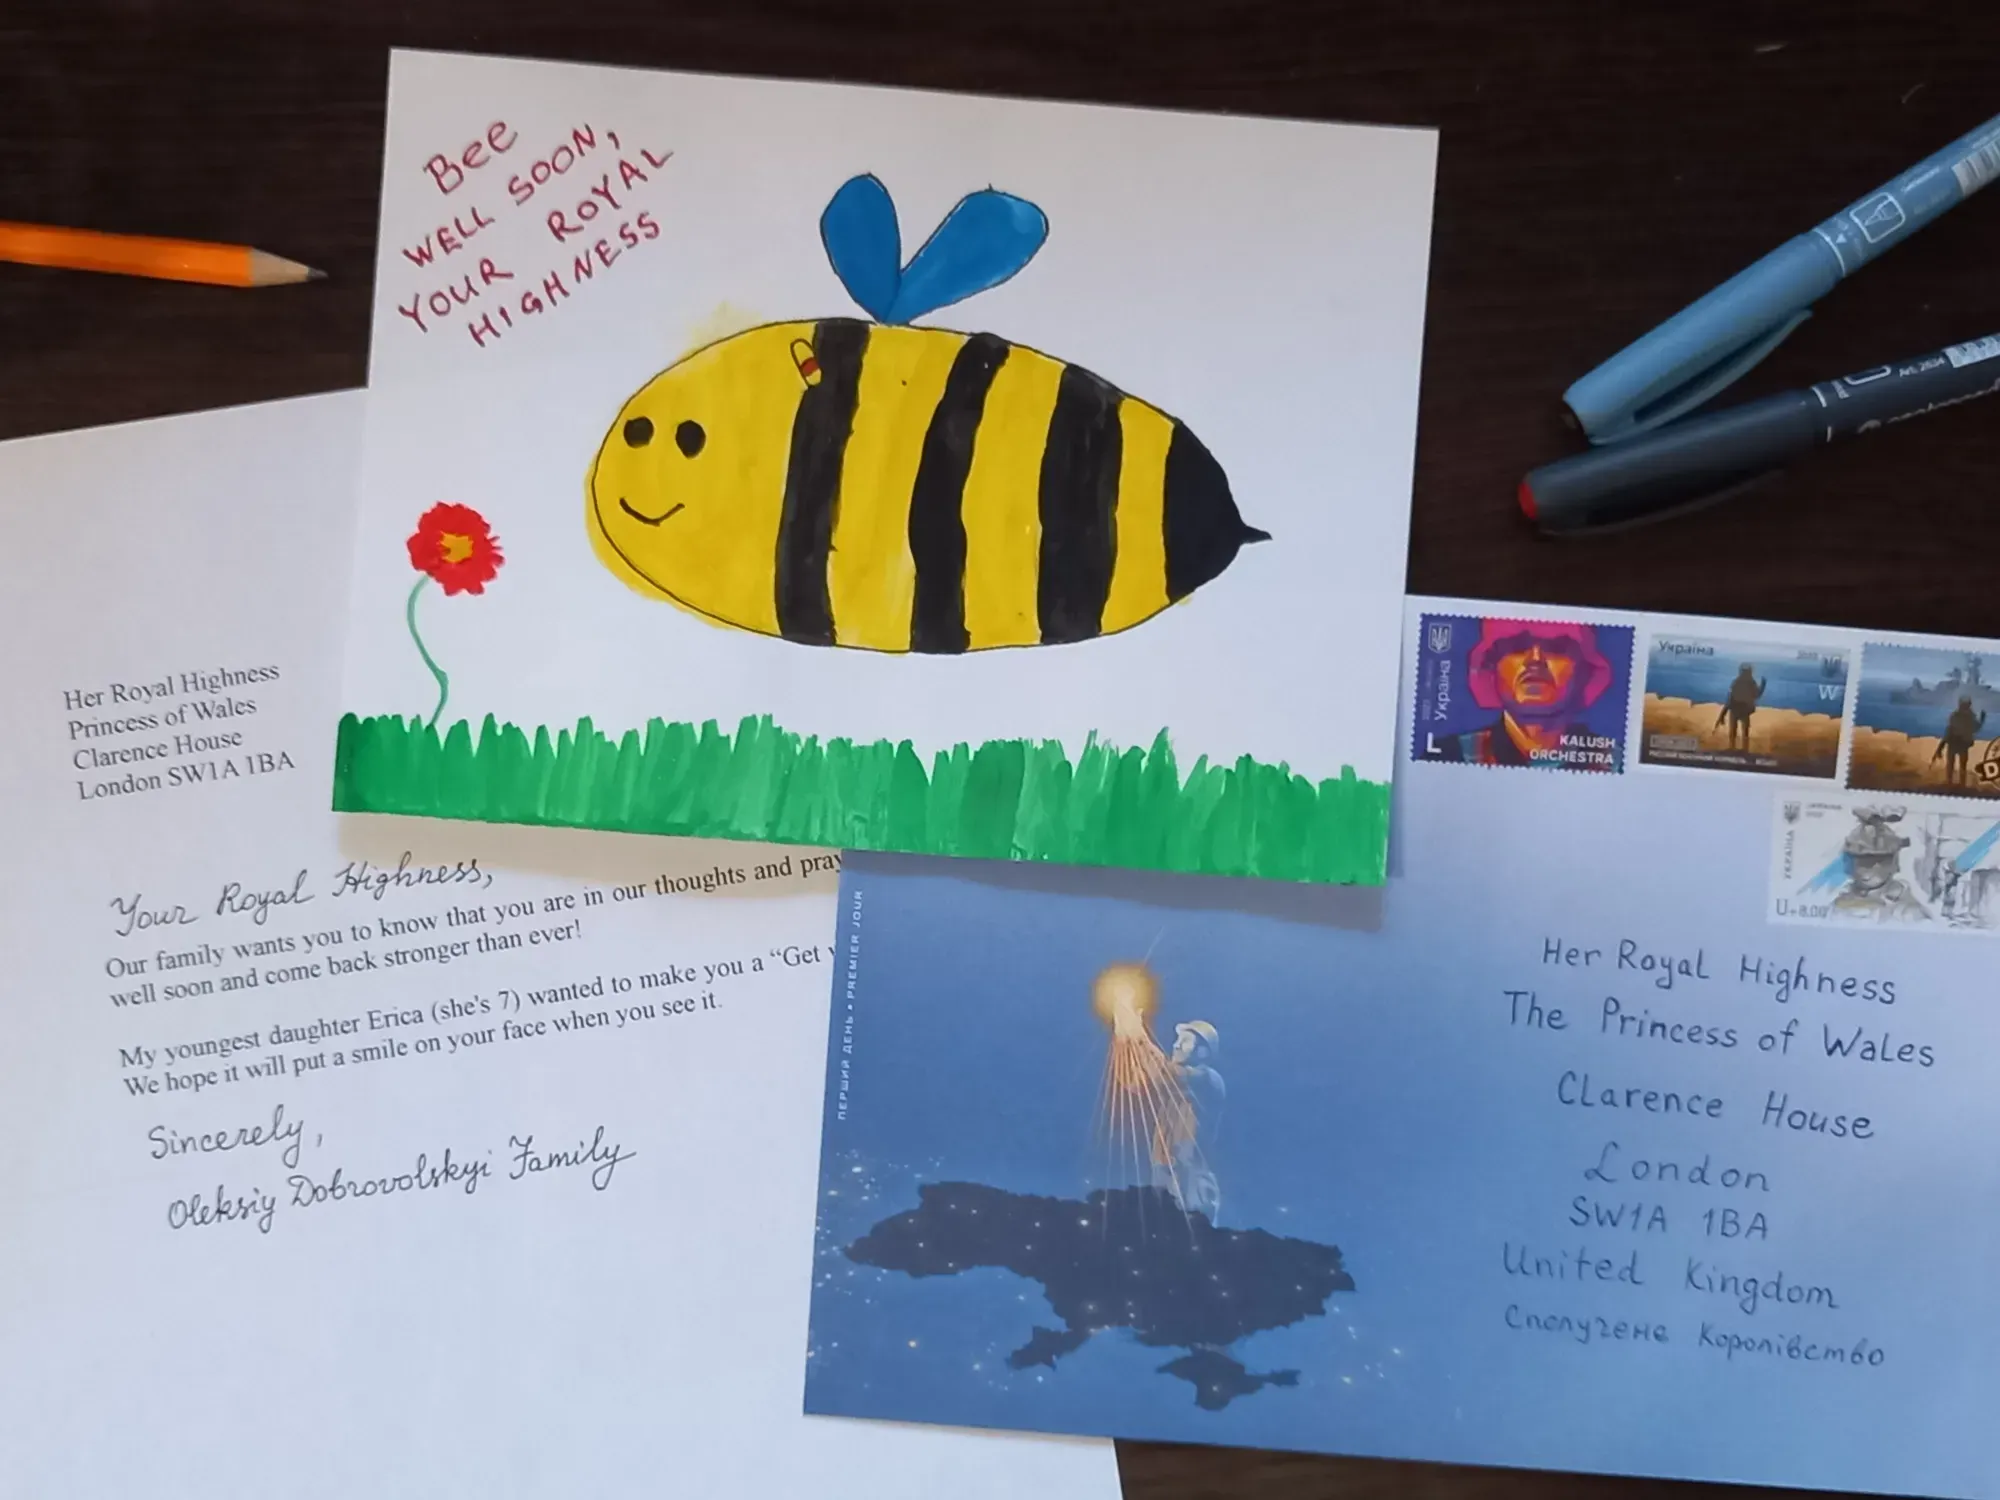 Bee
WELL SOON,
YOUR ROYAL
HIGHNESS
Her Royal Highness
Princess of Wales
Clarence House
London SW1A 1BA
Your Royal Highness,
Our family wants you to know that you are in our thoughts and pray
well soon and come back stronger than ever!
My youngest daughter Erica (she's 7) wanted to make you a “Get
We hope it will put a smile on your face when you see it.
Sincerely,
Oleksiy Dobrovolskyi Family
Україна
L
KALUSH
ORCHESTRA
Україна
W
УКРАЇНА
U+8.00
ПЕРШИЙ ДЕНЬ • PREMIER JOUR
Her Royal Highness
The Princess of Wales
Clarence House
London
SW1A 1BA
United Kingdom
Сполучене Королівство